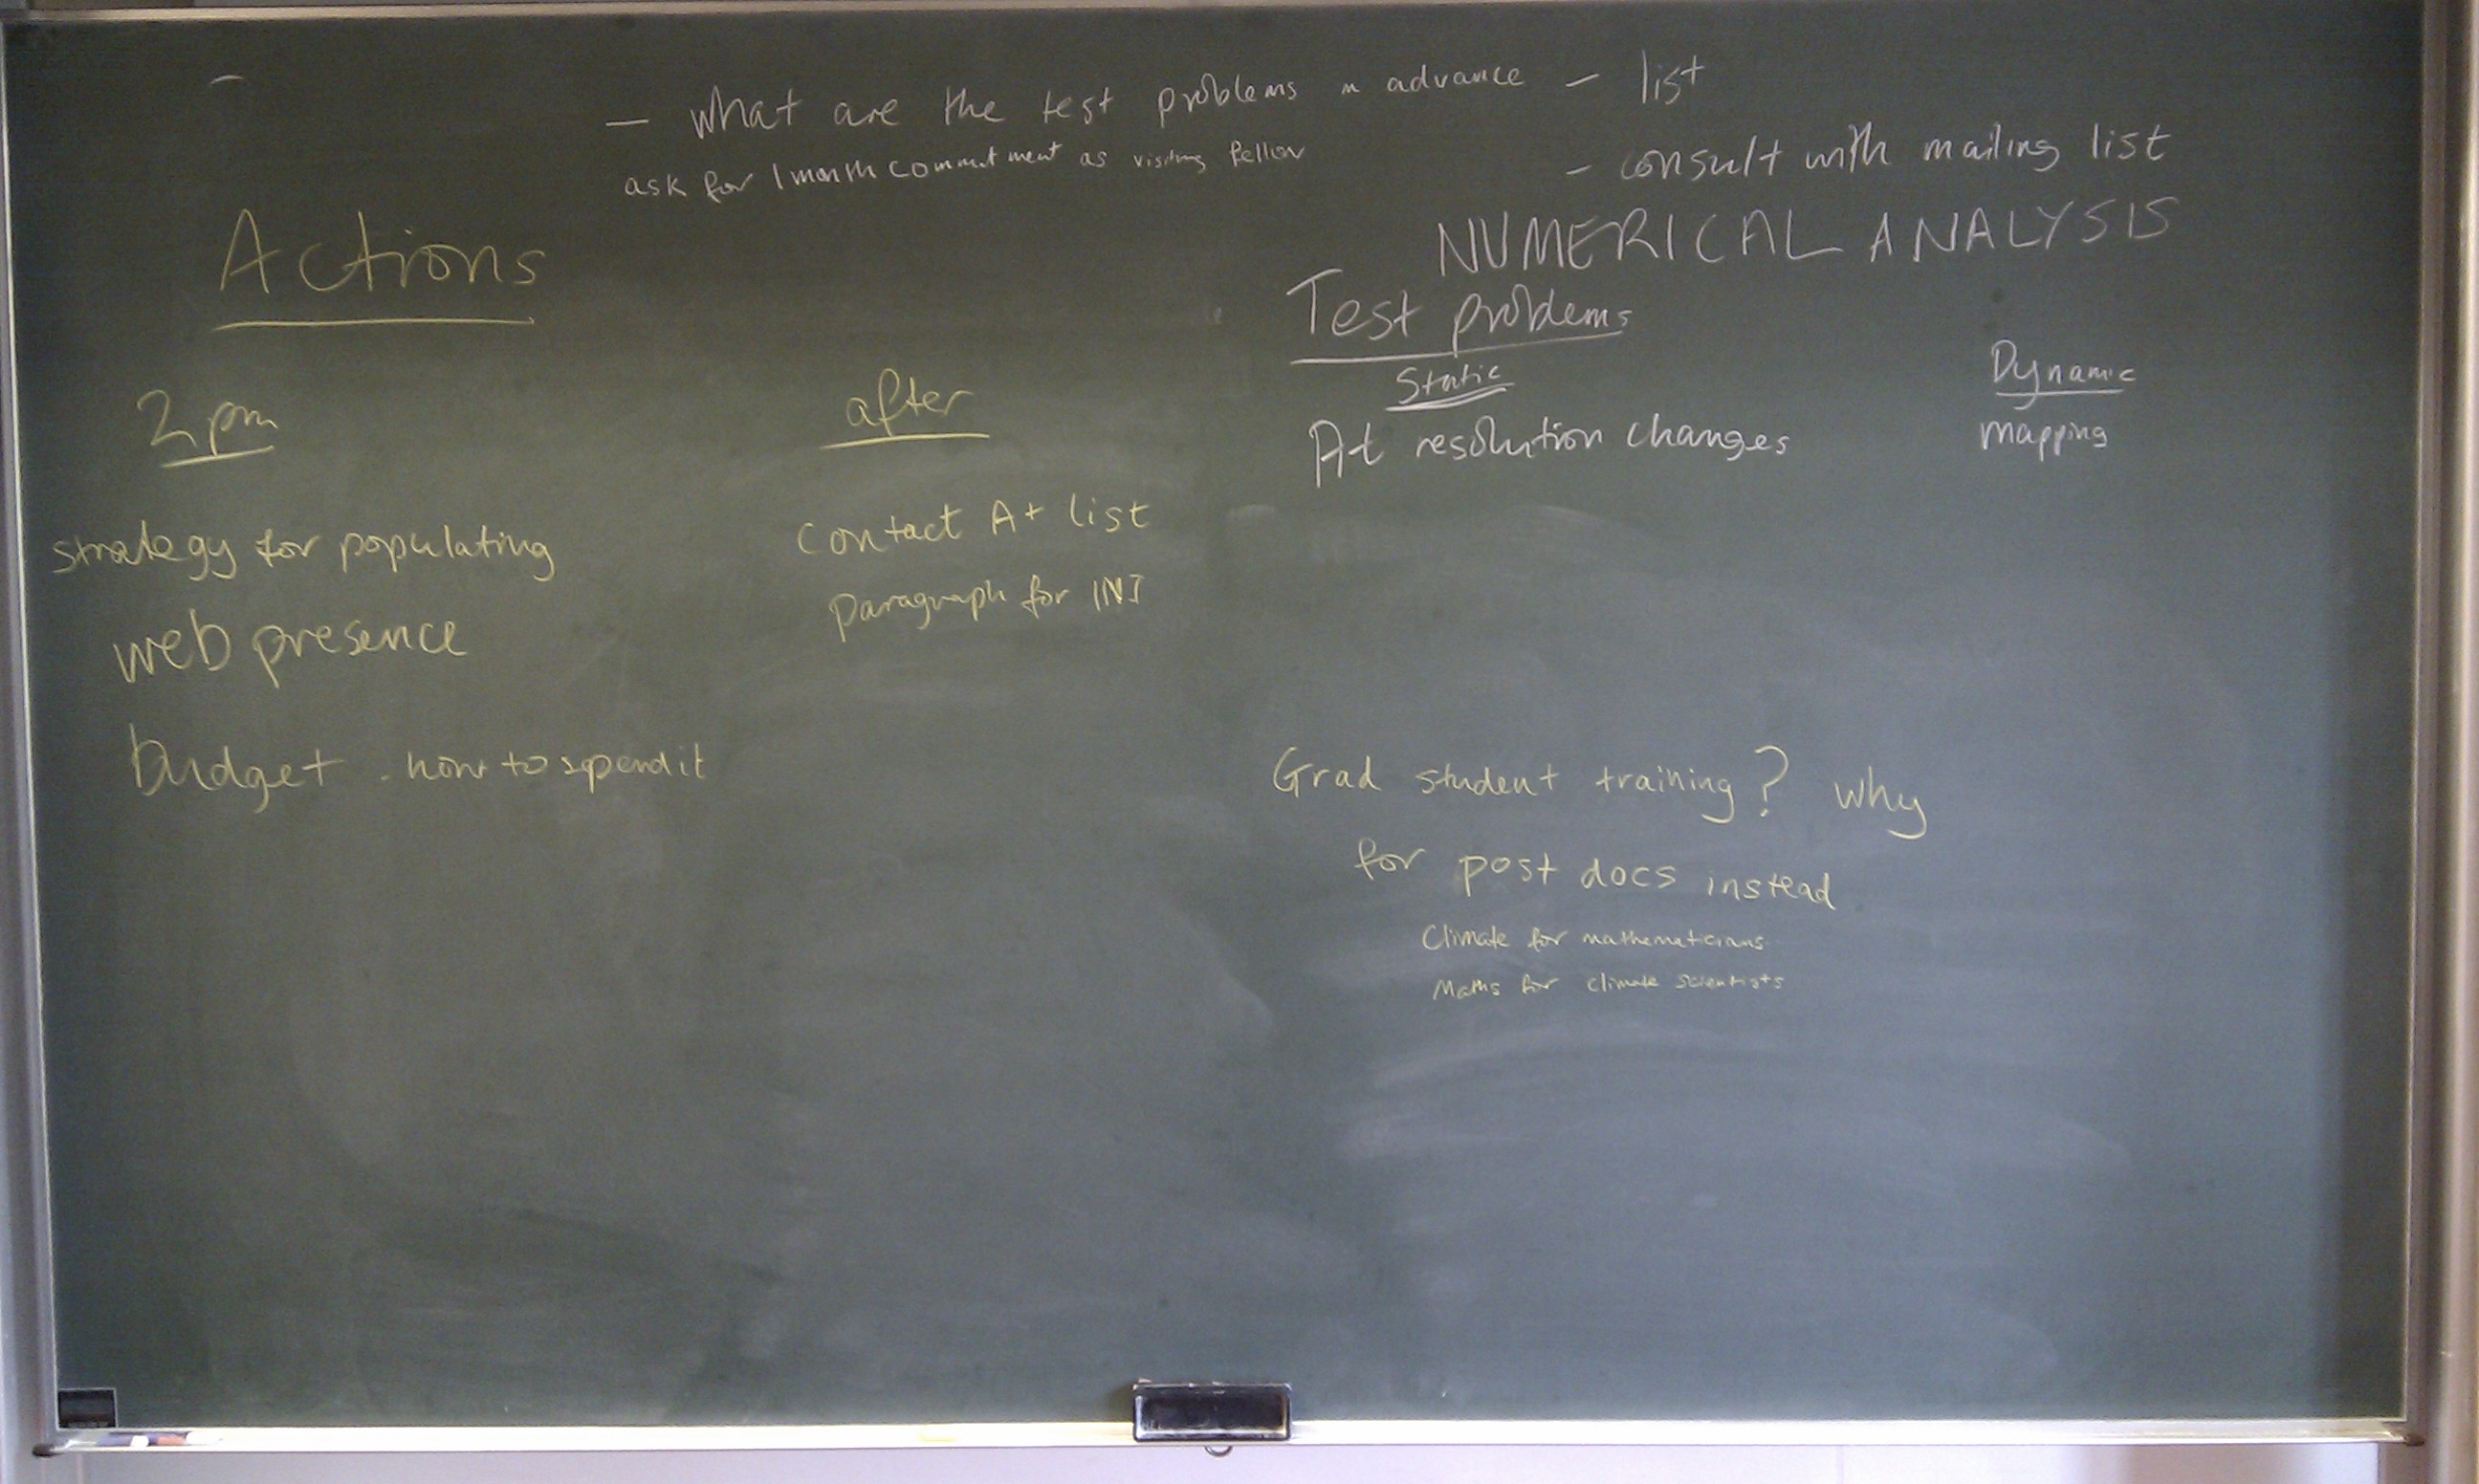 — what are the test problems in advance — list
ask for 1 month commitment as visiting fellow
- consult with mailing list
NUMERICAL ANALYSIS
Actions
2pm
strategy for populating
web presence
budget - how to spend it
after
contact A+ list
paragraph for INI
Test problems
Static
At resolution changes
Dynamic
mapping
Grad student training? why
for post docs instead
Climate for mathematicians
Maths for climate scientists